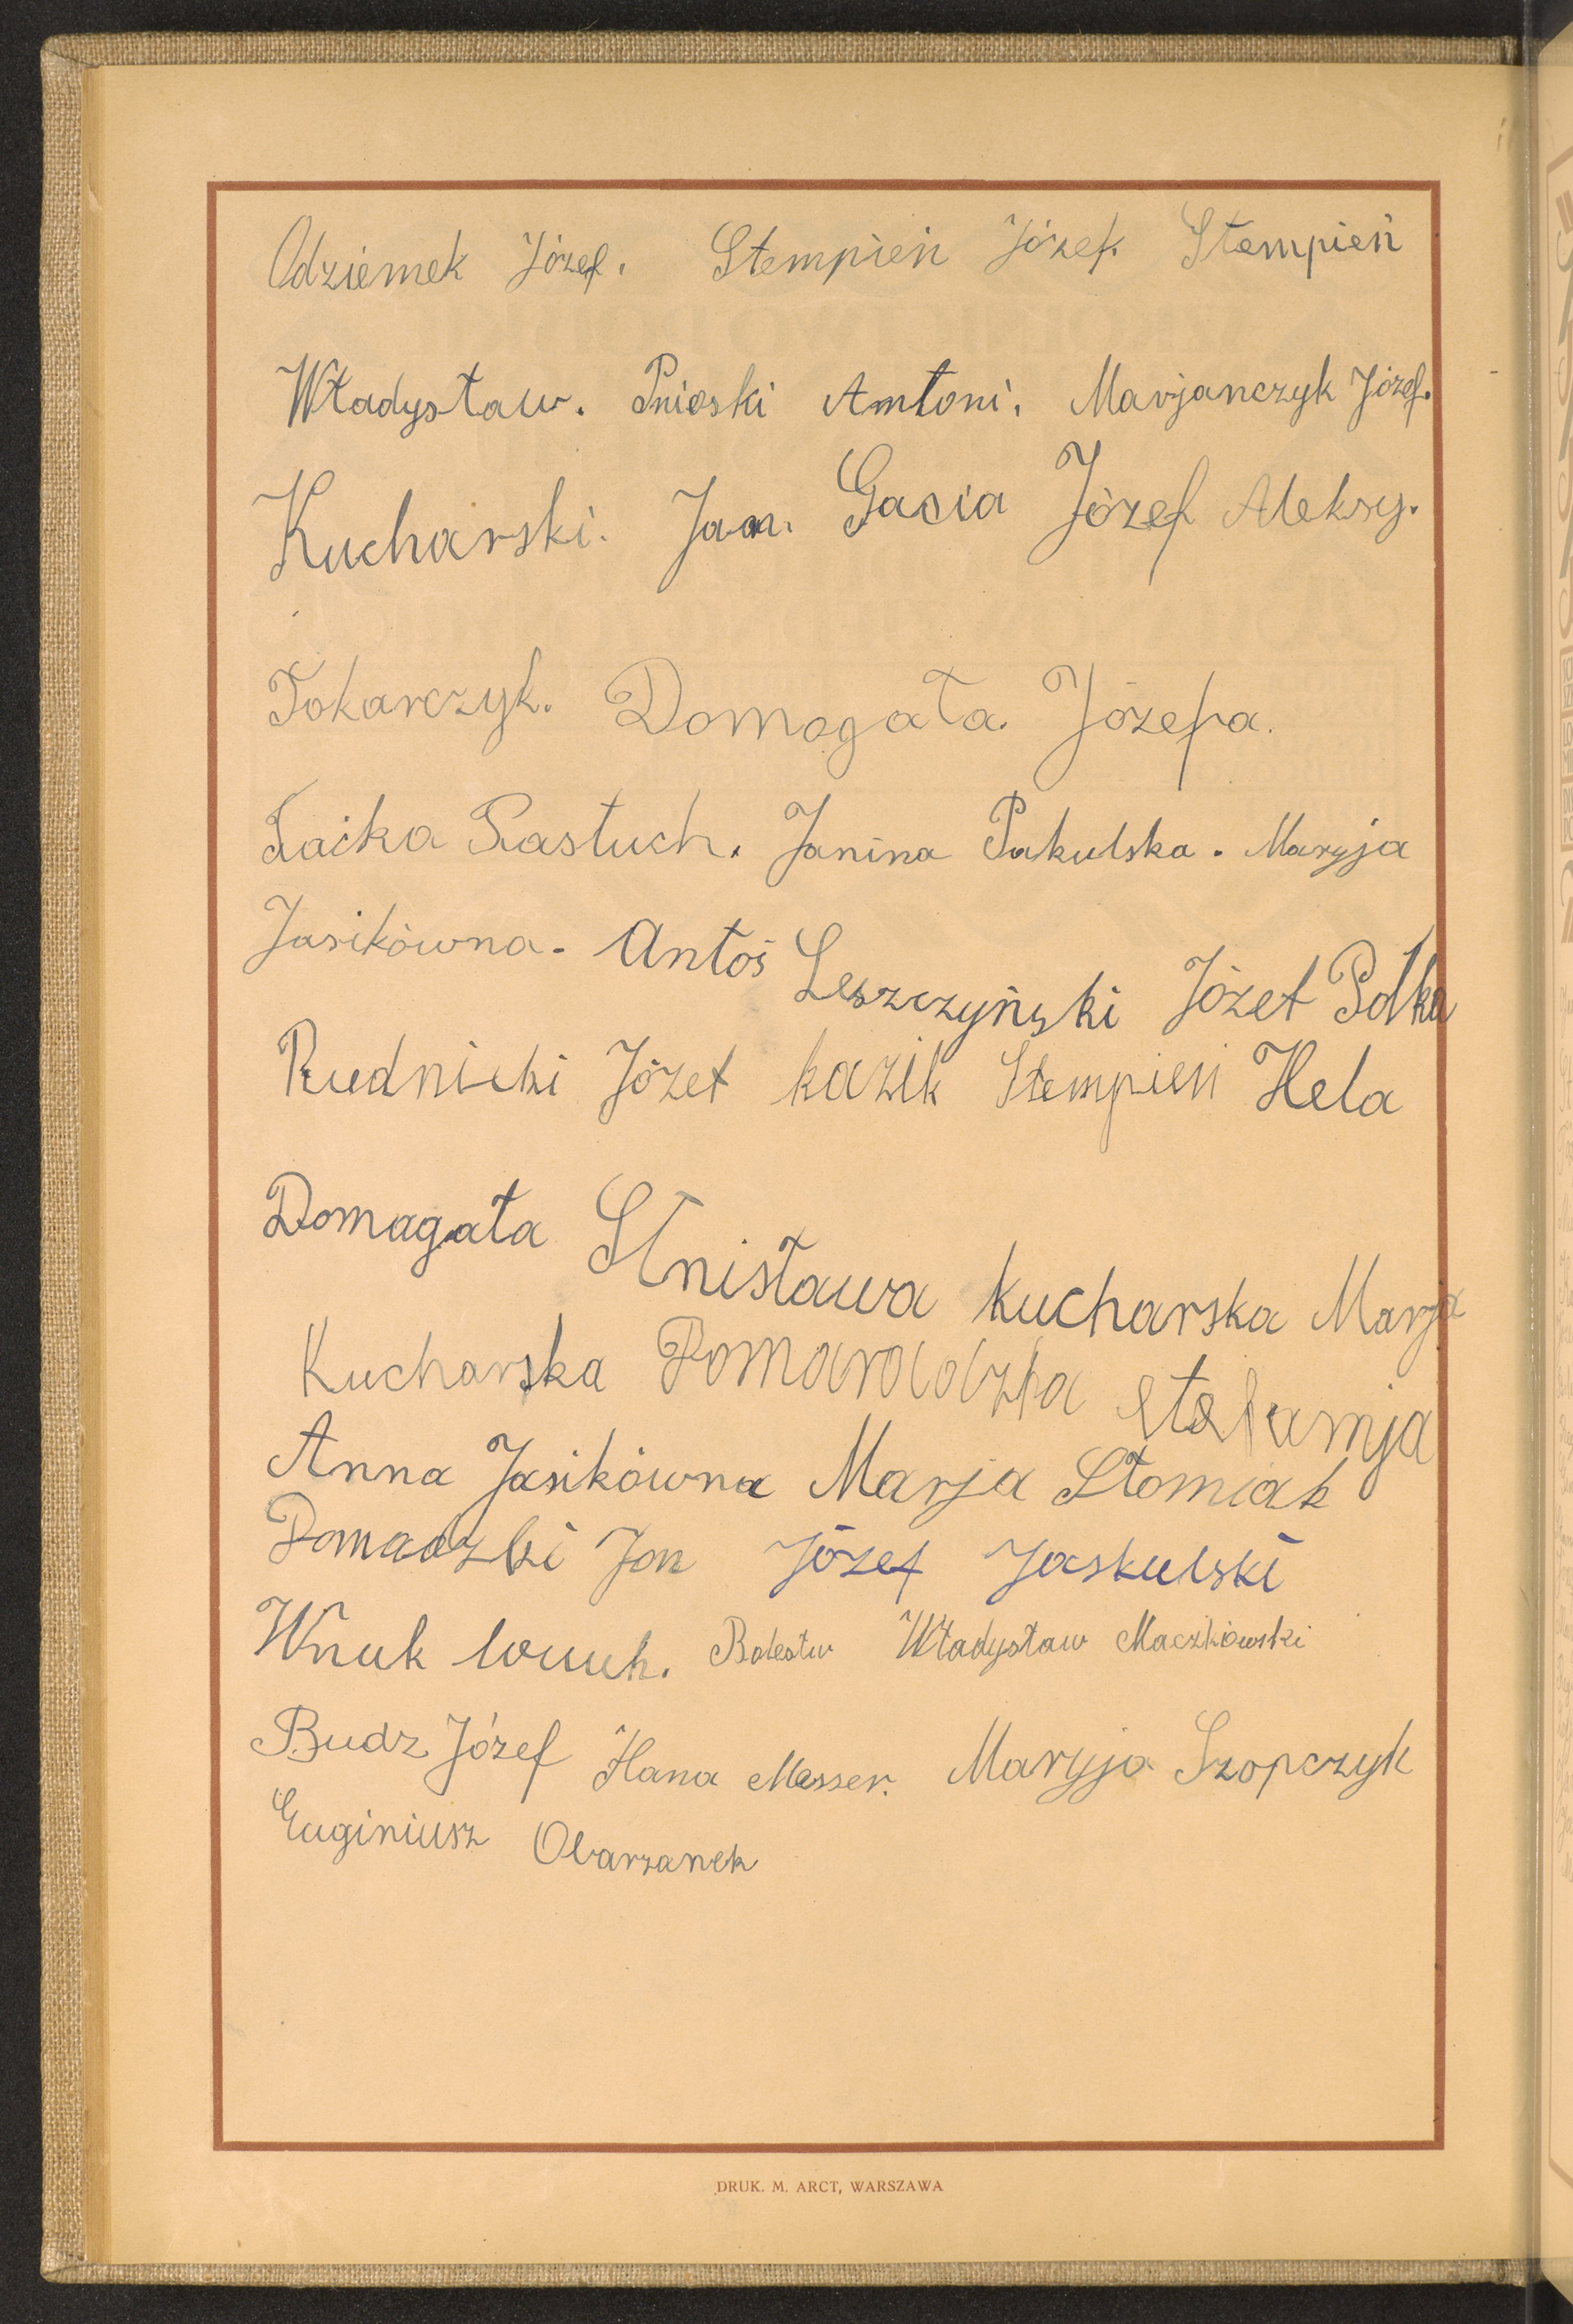 Odziemek Józef. Stempień Józef. Stempień
Władysław. Pnioski Antoni. Marjanczyk Józef.
Kucharski. Jan. Gasia Józef Aleksy.
Tokarczyk. Domogała. Józefa.
Rastuch. Janina Pakulska. Maryja
Jasikówna. Antoś Leszczyński Józef Polka
Rudnicki Józef kazik Stempień Hela
Domagała Stnisława kucharska Marja
Kucharska
Anna Jasikówna Marja Słomiak
Jon Józef Jaskulski
Wnuk Władysław Maczkowski
Budz Józef Hana Messer. Maryja Szopczyk
Euginiusz Obarzanek
DRUK. M. ARCT, WARSZAWA